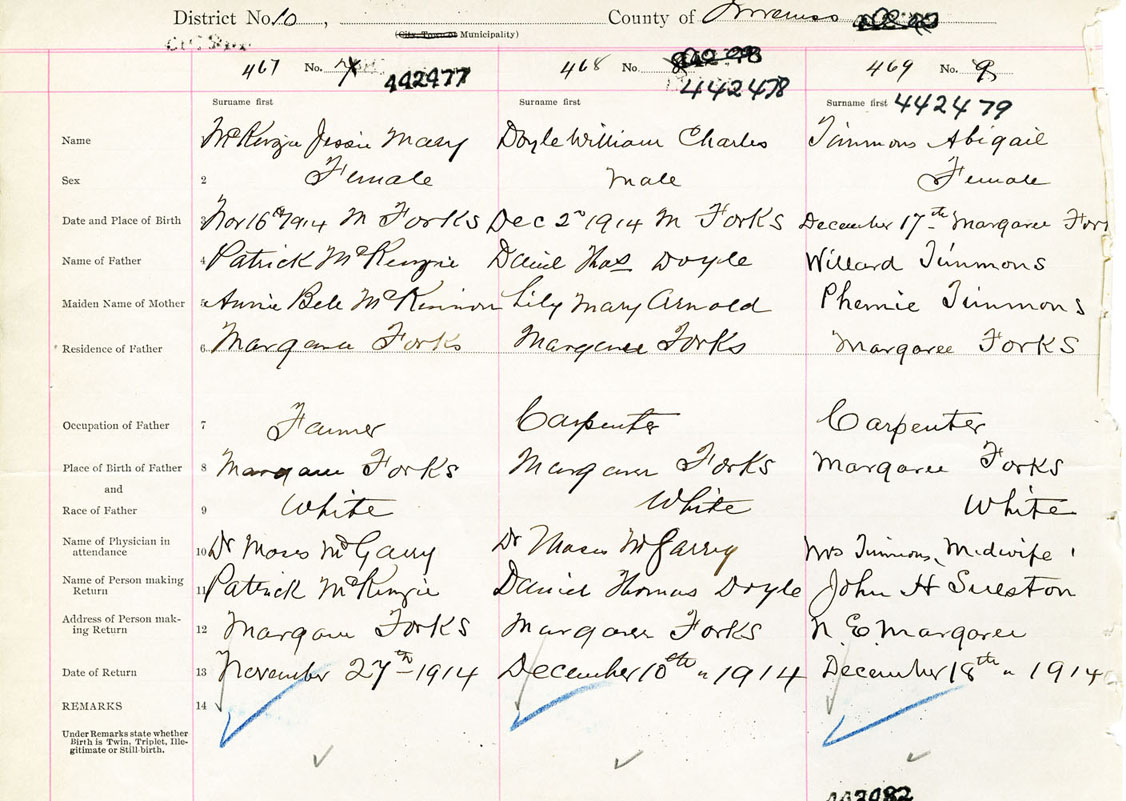 District No. 10, County of Inverness
(City, Town or Municipality)
467 No. 442477 468 No. 8 442478 469 No. 9
Surname first Surname first Surname first 442479
Name McKenzie Jessie Mary Doyle William Charles Timmons Abigail
Sex 2 Female Male Female
Date and Place of Birth 3 Nov 16th 1914 M Forks Dec 2nd 1914 M Forks December 17th Margaree Forks
Name of Father 4 Patrick McKenzie Daniel Thos Doyle Willard Timmons
Maiden Name of Mother 5 Annie Bell McKinnon Lily Mary Arnold Phemie Timmons
Residence of Father 6 Margaree Forks Margaree Forks Margaree Forks
Occupation of Father 7 Farmer Carpenter Carpenter
Place of Birth of Father 8 Margaree Forks Margaree Forks Margaree Forks
and
Race of Father 9 White White White
Name of Physician in
attendance 10 Dr Moses McGarry Dr Moses McGarry Mrs Timmons, Midwife
Name of Person making
Return 11 Patrick McKenzie Daniel Thomas Doyle John H
Address of Person mak-
ing Return 12 Margaree Forks Margaree Forks N. E. Margaree
Date of Return 13 November 27th 1914 December 10th " 1914 December 18th " 1914
REMARKS 14
Under Remarks state whether
Birth is Twin, Triplet, Ille-
gitimate or Still-birth.
442982